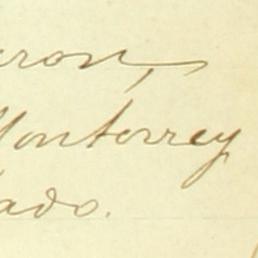 eron,
Monterrey
ado.